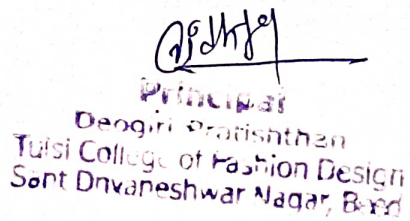 Principal
Deogiri Pratishthan
Tulsi College of Fashion Design
Sant Dnyaneshwar Nagar, Beed